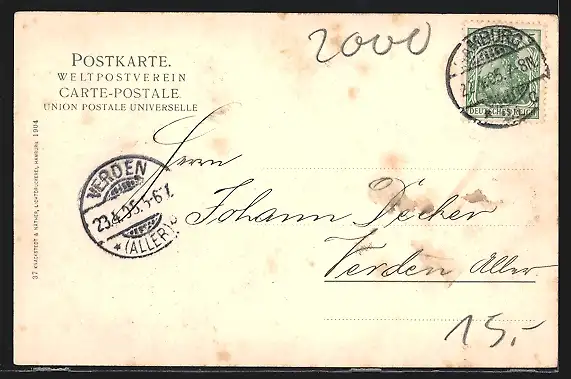 2000
POSTKARTE.
WELTPOSTVEREIN
CARTE-POSTALE
UNION POSTALE UNIVERSELLE
HAMBURG
DEUTSCHES REICH
37 KNACKSTEDT & NÄTHER, LICHTDRUCKEREI, HAMBURG 1904
VERDEN
23.4.05.5-6 V.
* (ALLER)
Herrn
Johann Decker
Verden, Aller.
15,-